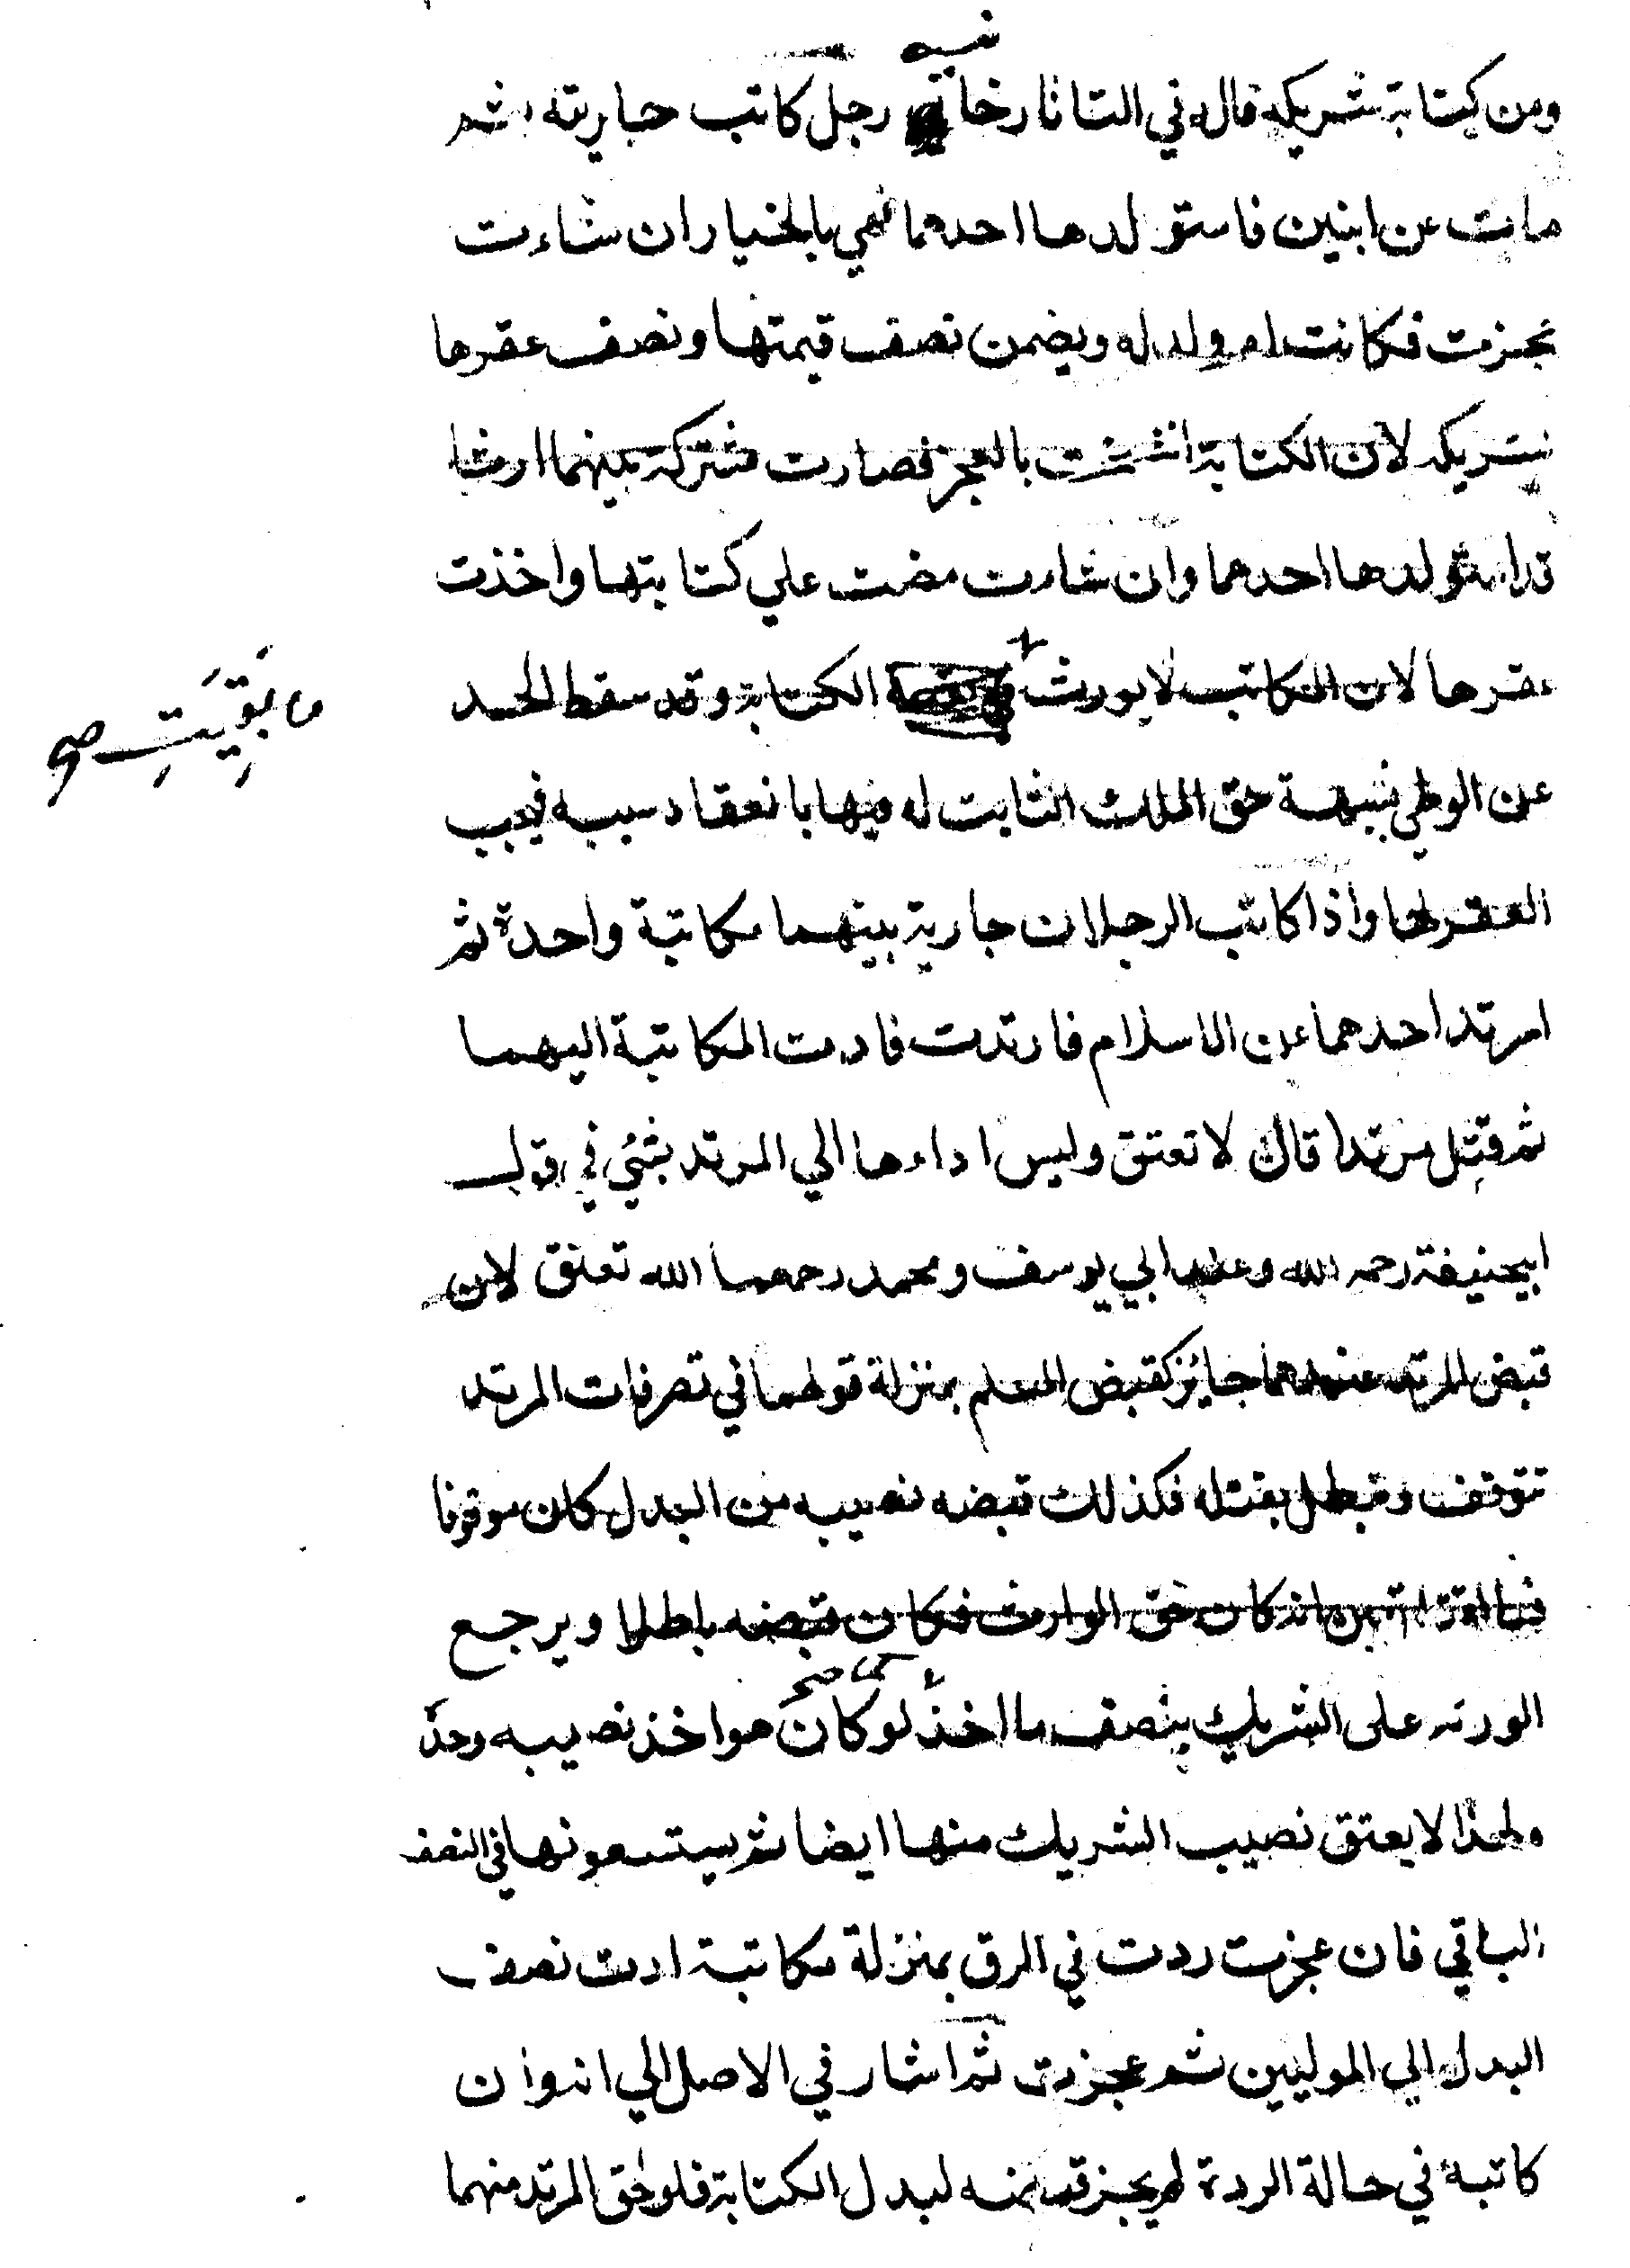 ومن كتابة شريكه قال في التاتارخانيه رجل كاتب جاريته ثم
مات عن ابنين فاستولدها احدهما فهي بالخيار ان شاءت
عجزت فكانت ام ولد له ويضمن نصف قيمتها ونصف عقرها
لشريكه لان الكتابة انفسخت بالعجز فصارت مشتركة بينهما ارثا
قد استولدها احدهما وان شاءت مضت علي كتابتها واخذت
عقرها لان المكاتب لا يورث الكتابة وقد سقط الحد
ما بَقِيَتِ صح
عن الوطي بشبهة حق الملك الثابت له فيها بانعقاد سببه فيجب
العقر لها واذا كاتب الرجلان جارية بينهما مكاتبة واحدة ثم
ارتد احدهما عن الاسلام فارتدت فادت المكاتبة اليهما
ثم قتل مرتدا قال لا تعتق وليس اداءها الي المرتد بشيء في قول
ابيحنيفة رحمه الله وعند ابي يوسف ومحمد رحمهما الله تعتق لان
قبض المرتد عندهما جايز كقبض المسلم بمنزلة قولهما في تصرفات المرتد
تتوقف وتبطل بقتله فكذلك قبضه نصيبه من البدل كان موقوفا
تبين انه كان حق الوارث فكان قبضه باطلا ويرجع
الورثه على الشريك بنصف ما اخذ كما صح لو كان هو اخذ نصيبه وحده
ولهذا لا يعتق نصيب الشريك منها ايضا ثم يستسعونها في النصف
الباقي فان عجزت ردت في الرق بمنزلة مكاتبة ادت نصف
البدل الي الموليين ثم عجزت ثم اشار في الاصل الي انه وان
كاتبه في حالة الردة لم يجز قبضه لبدل الكتابة فلو لحق المرتد منهما